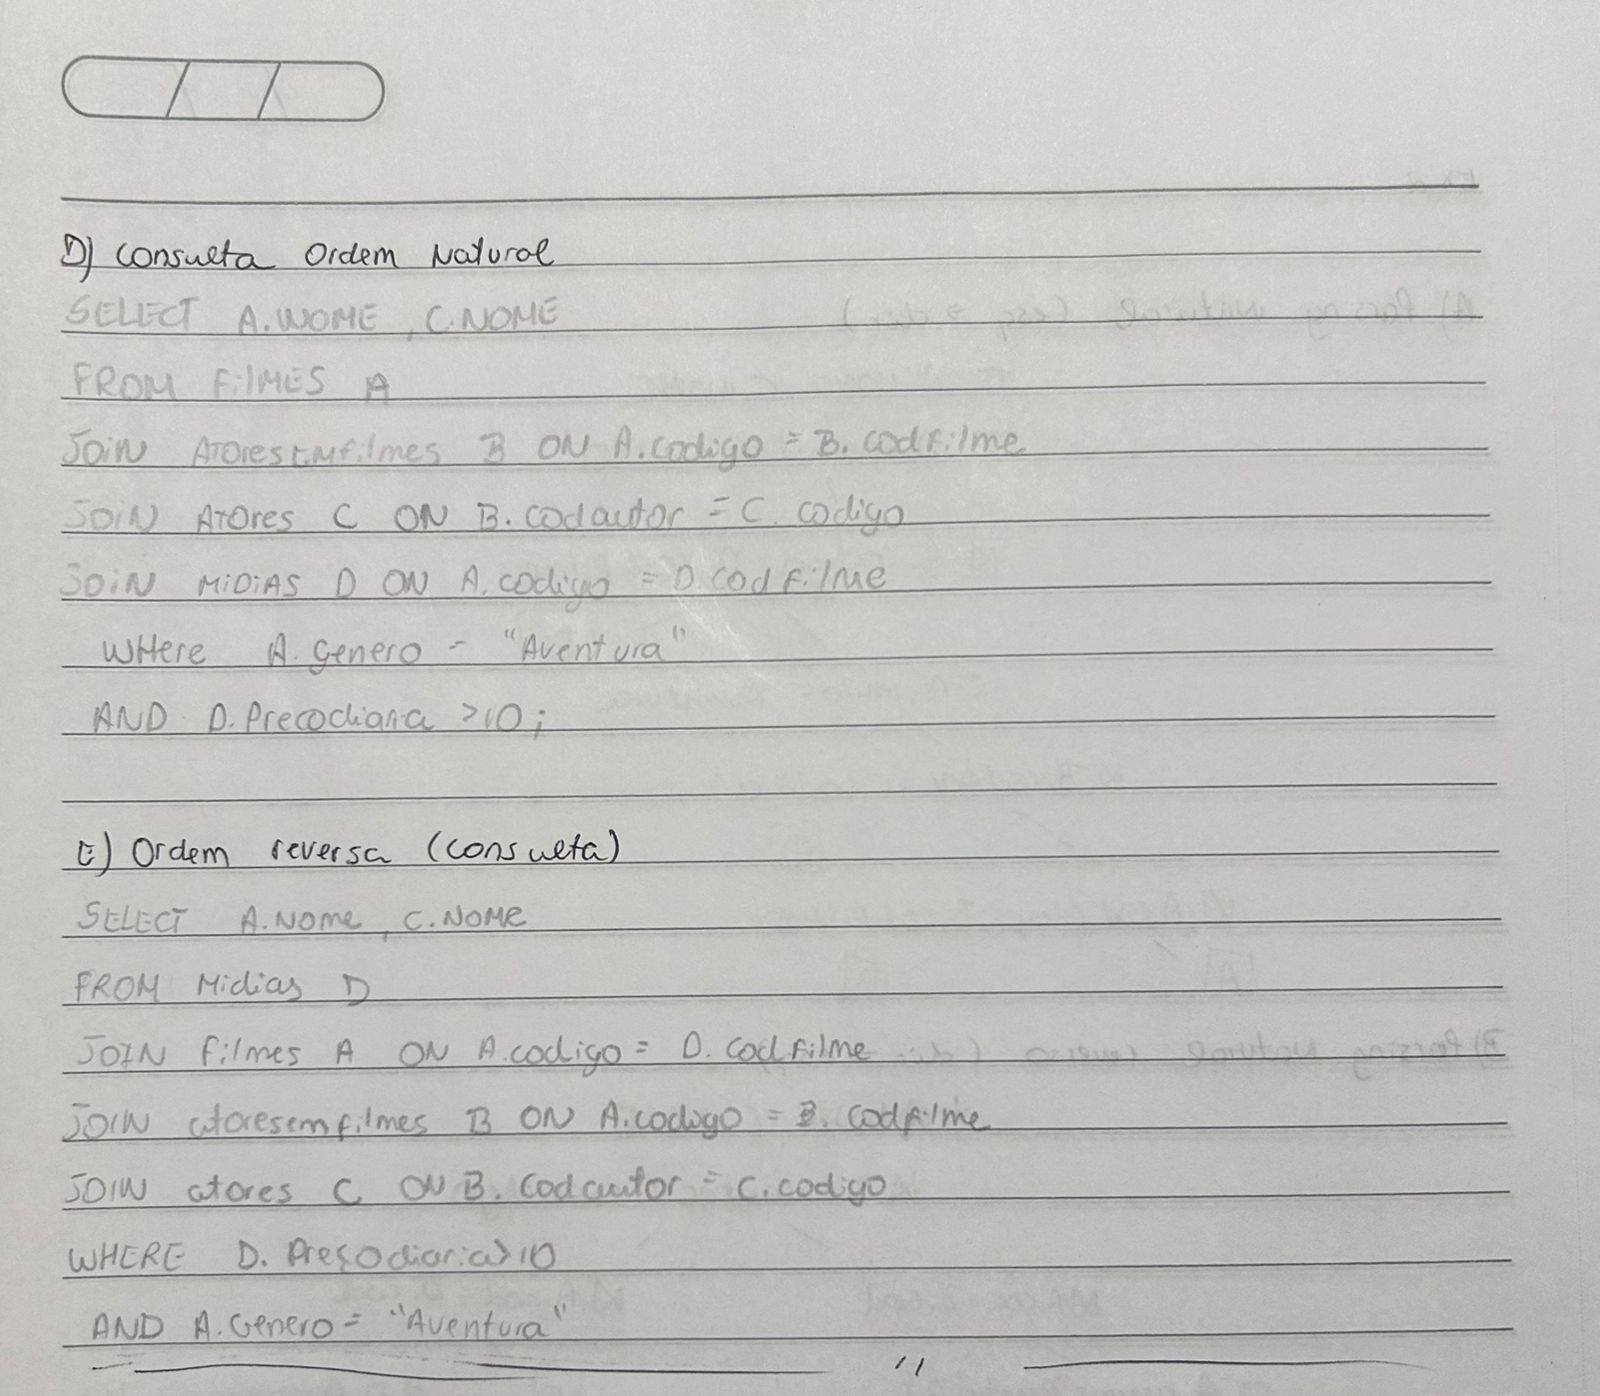 D) Consulta Ordem Natural
SELECT A.NOME, C.NOME
FROM FilMES A
JOIN AtoresEmfilmes B ON A.codigo = B.codfilme
JOIN Atores C ON B.codautor = C.codigo
JOIN MIDIAS D ON A.codigo = D.codfilme
WHere A.genero = "Aventura"
AND D.Precodiaria >10;
E) Ordem reversa (consulta)
SELECT A.Nome, C.NOME
FROM Midias D
JOIN filmes A ON A.codigo = D.codfilme
JOIN atoresemfilmes B ON A.codigo = B.codfilme
JOIN atores C ON B.codautor = C.codigo
WHERE D.Preçodiaria>10
AND A.Genero = "Aventura"